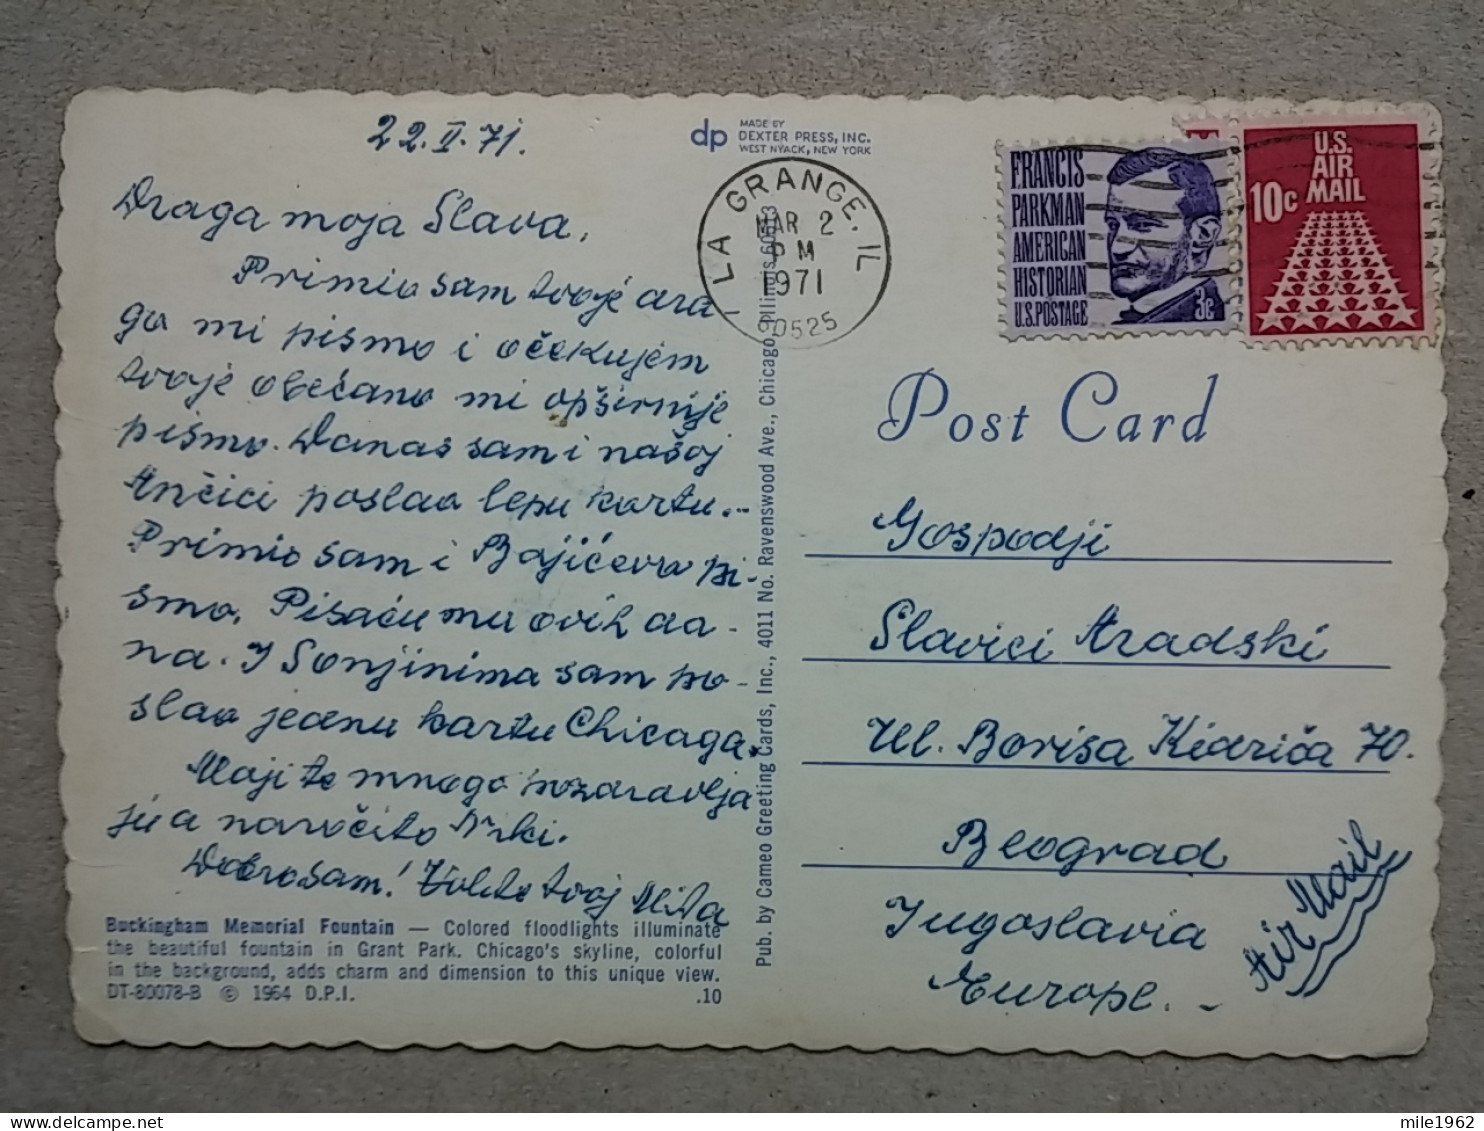 22.II.71.
Draga moja Slava,
Primio sam tvoje dra
go mi pismo i očekujem
tvoje obećano mi opširnije
pismo. Danas sam i našoj
Ančici poslao lepu kartu.-
Primio sam i Bajićevo pi-
smo. Pisaću mu ovih da-
na. I Sonjinima sam po-
slao jednu kartu Chicaga.
Moji te mnogo pozdravlja
ju a naročito
Dobro sam! Voli te tvoj
Buckingham Memorial Fountain — Colored floodlights illuminate
the beautiful fountain in Grant Park. Chicago's skyline, colorful
in the background, adds charm and dimension to this unique view.
DT-80078-B © 1964 D.P.I. .10
dp MADE BY
DEXTER PRESS, INC.
WEST NYACK, NEW YORK
Pub. by Cameo Greeting Cards, Inc., 4011 No. Ravenswood Ave., Chicago, Illinois
LA GRANGE, IL
MAR 2
PM
1971
0525
FRANCIS
PARKMAN
AMERICAN
HISTORIAN
U.S.POSTAGE
3c
U.S.
AIR
MAIL
10c
Post Card
Gospodji
Slavici Aradski
Ul. Borisa Kidriča 70.
Beograd
Jugoslavia
Europe. -
Air Mail
mile1962